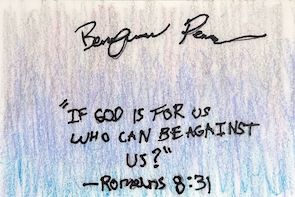 "IF GOD IS FOR US
WHO CAN BE AGAINST
US?"
—Romans 8:31